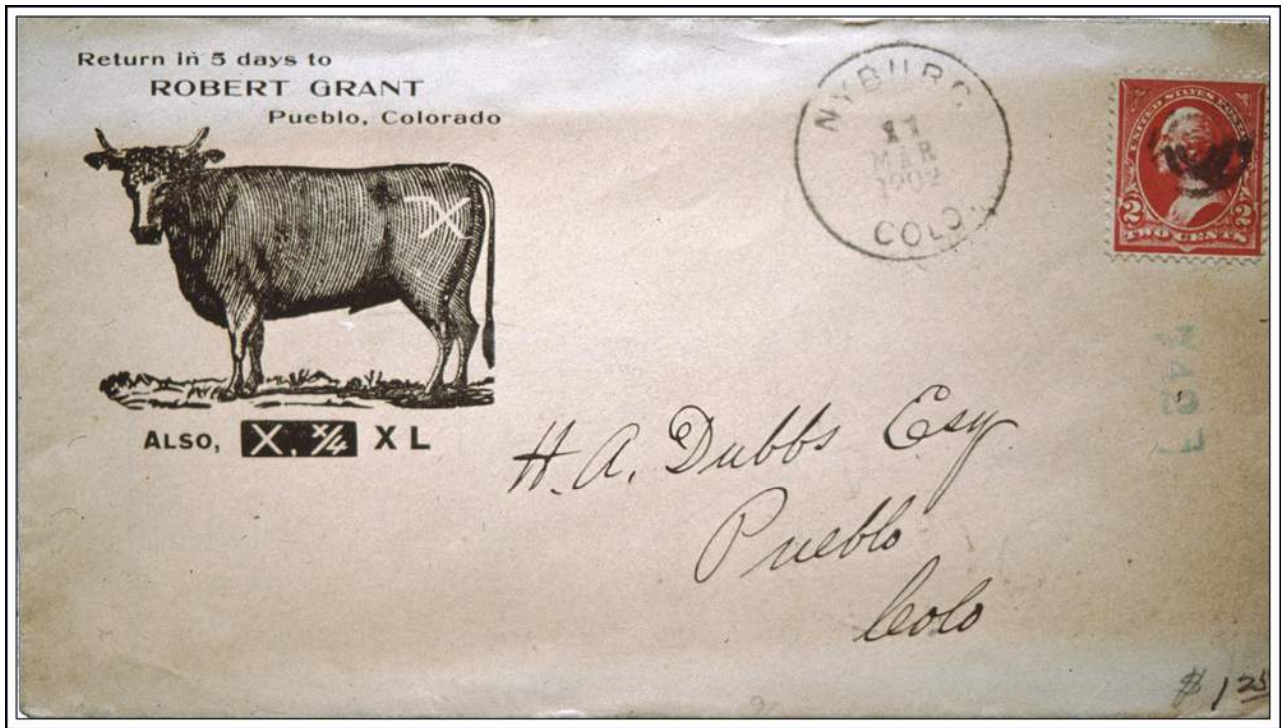 Return in 5 days to
ROBERT GRANT
Pueblo, Colorado
X
ALSO, X, X/4 X L
NYBURG
11
MAR
1902
COLO.
UNITED STATES POSTAGE
2 2
TWO CENTS
H. A. Dubbs Esq
Pueblo
Colo
$ 1 25